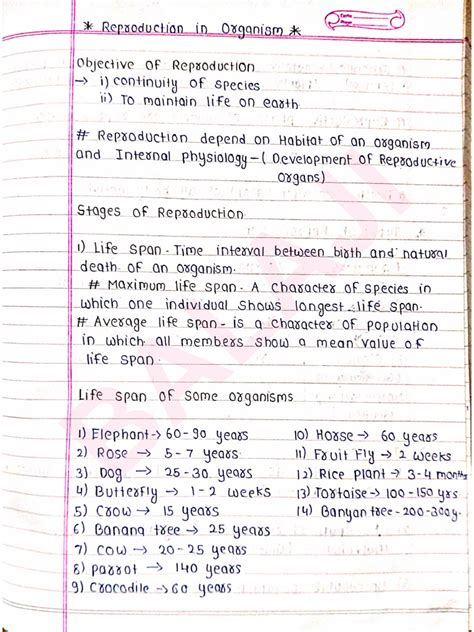 * Reproduction in Organism *
Date
Page
Objective of Reproduction
→ i) continuity of species
ii) To maintain life on earth
# Reproduction depend on Habitat of an organism
and Internal physiology-( Development of Reproductive
Organs)
Stages of Reproduction
1) Life Span- Time interval between birth and natural
death of an organism.
# Maximum life span- A character of species in
which one individual shows longest life span.
# Average life span - is a character of population
in which all members show a mean value of
life span.
Life span of Some organisms
1) Elephant → 60-90 years
2) Rose → 5-7 years
3) Dog → 25-30 years
4) Butterfly → 1-2 weeks
5) Crow → 15 years
6) Banana tree → 25 years
7) Cow → 20-25 years
8) Parrot → 140 years
9) Crocodile → 60 years
10) Horse → 60 years
11) Fruit Fly → 2 weeks
12) Rice Plant → 3-4 months
13) Tortoise → 100-150 yrs
14) Banyan tree - 200-300y.
BALAJI